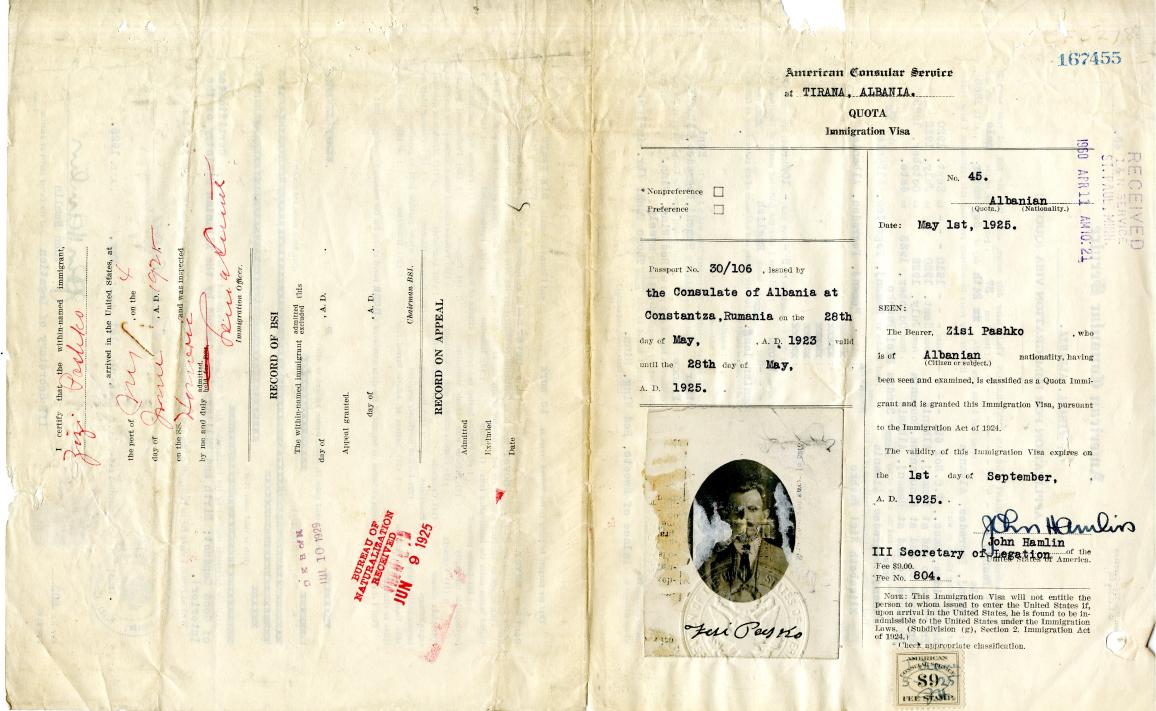 I certify that the within-named immigrant,
Zizi Pashko
, arrived in the United States, at
the port of N.Y. , on the 4
day of June , A. D. 1925
on the SS. Homeric , and was inspected
by me and duly admitted,
Immigration Officer.
RECORD OF BSI
The within-named immigrant admitted excluded this
day of , A. D.
Appeal granted.
day of , A. D.
(Chairman BSI.
RECORD ON APPEAL
Admitted
Excluded
Date
JUL 10 1929
BUREAU OF
NATURALIZATION
RECEIVED
JUN 9 1925
167455
American Consular Service
at TIRANA, ALBANIA.
QUOTA
Immigration Visa
* Nonpreference
Preference
Passport No. 30/106 , issued by
the Consulate of Albania at
Constantza, Rumania on the 28th
day of May, , A. D. 1923 , valid
until the 28th day of May,
A. D. 1925.
Zisi Pashko
No. 45.
Albanian
(Quota.) (Nationality.)
Date: May 1st, 1925.
SEEN:
The Bearer, Zisi Pashko , who
is of Albanian nationality, having
(Citizen or subject.)
been seen and examined, is classified as a Quota Immi-
grant and is granted this Immigration Visa, pursuant
to the Immigration Act of 1924.
The validity of this Immigration Visa expires on
the 1st day of September, ,
A. D. 1925. .
John Hamlin
John Hamlin
III Secretary of Legation of the
United States of America.
Fee $9.00.
Fee No. 804.
NOTE: This Immigration Visa will not entitle the
person to whom issued to enter the United States if,
upon arrival in the United States, he is found to be in-
admissible to the United States under the Immigration
Laws. (Subdivision (g), Section 2, Immigration Act
of 1924.)
* Check appropriate classification.
AMERICAN
CONSULAR SERVICE
$9
FEE STAMP
RECEIVED
I & N SERVICE
ST. PAUL, MINN.
1960 APR 11 AM 10:21